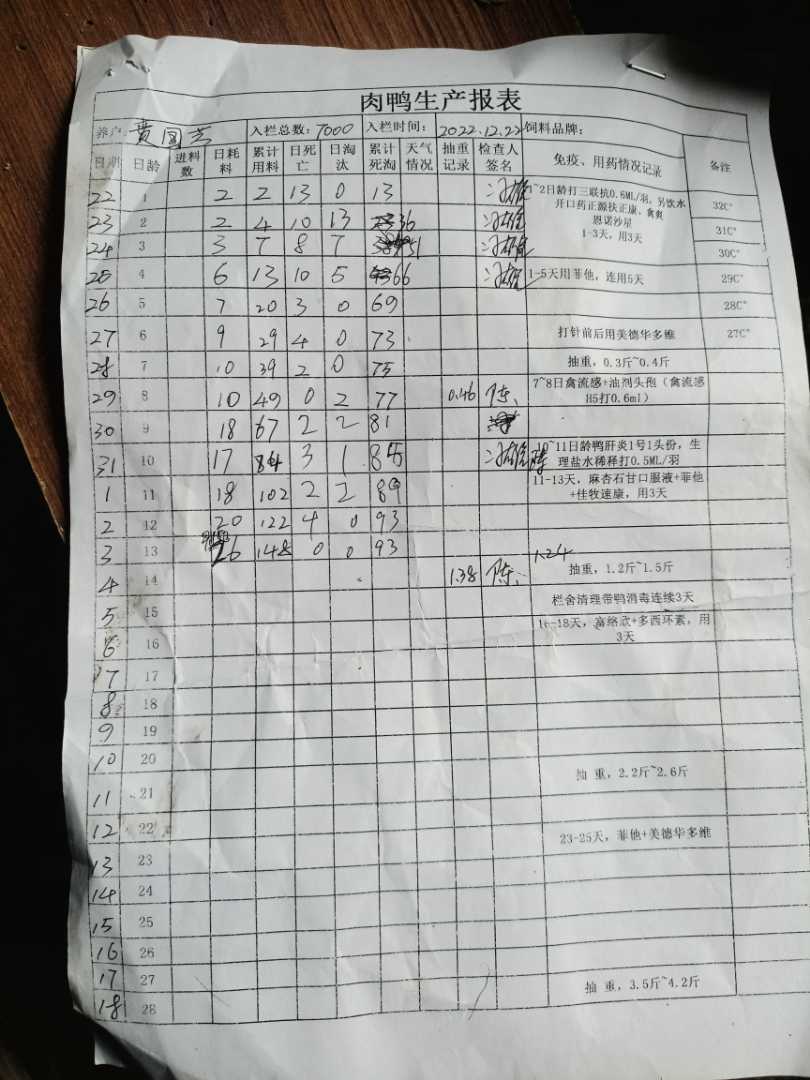 肉鸭生产报表
养户: 贾国芳 入栏总数: 7000 入栏时间: 2022.12.22 饲料品牌:
日期 日龄 进料数 日耗料 累计用料 日死亡 日淘汰 累计死淘 天气情况 抽重记录 检查人签名 免疫、用药情况记录 备注
22 1 2 2 13 0 13 1~2日龄打三联抗0.6ML/羽，另饮水开口药正源扶正康、禽爽恩诺沙星 32C°
23 2 2 4 10 13 36 31C°
24 3 3 7 8 7 51 1-3天，用3天 30C°
25 4 6 13 10 5 66 1-5天用菲他，连用5天 29C°
26 5 7 20 3 0 69 28C°
27 6 9 29 4 0 73 打针前后用美德华多维 27C°
28 7 10 39 2 0 75 抽重，0.3斤~0.4斤
29 8 10 49 0 2 77 0.46 陈 7~8日禽流感+油剂头孢（禽流感H5打0.6ml）
30 9 18 67 2 2 81
31 10 17 84 3 1 85 10~11日龄鸭肝炎1号1头份，生理盐水稀释打0.5ML/羽
1 11 18 102 2 2 89 11-13天，麻杏石甘口服液+菲他+佳牧速康，用3天
2 12 20 122 4 0 93
3 13 26 148 0 0 93
4 14 1.38 陈 1.24 抽重，1.2斤~1.5斤
5 15 栏舍清理带鸭消毒连续3天
6 16 16-18天，富络欣+多西环素，用3天
7 17
8 18
9 19
10 20 抽 重，2.2斤~2.6斤
11 21
12 22 23-25天，菲他+美德华多维
13 23
14 24
15 25
16 26
17 27 抽 重，3.5斤~4.2斤
18 28